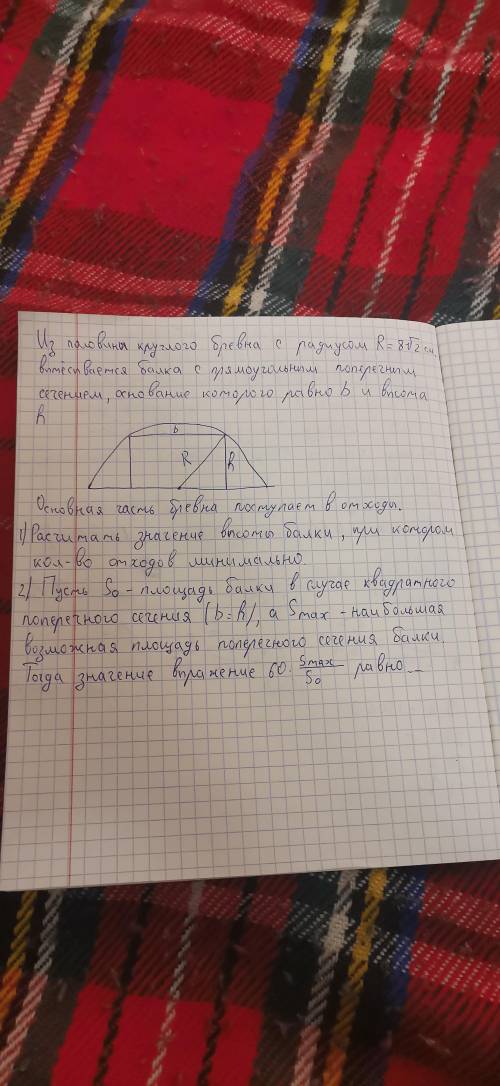 Из половины круглого бревна с радиусом R = 8√2 см,
вытёсывается балка с прямоугольным поперечным
сечением, основание которого равно b и высота
h
b
R
h
Основная часть бревна поступает в отходы.
1) Расчитать значение высоты балки, при котором
кол-во отходов минимально.
2) Пусть S₀ - площадь балки в случае квадратного
поперечного сечения (b = h), а Smax - наибольшая
возможная площадь поперечного сечения балки.
Тогда значение выражение 60 · Smax/S₀ равно _